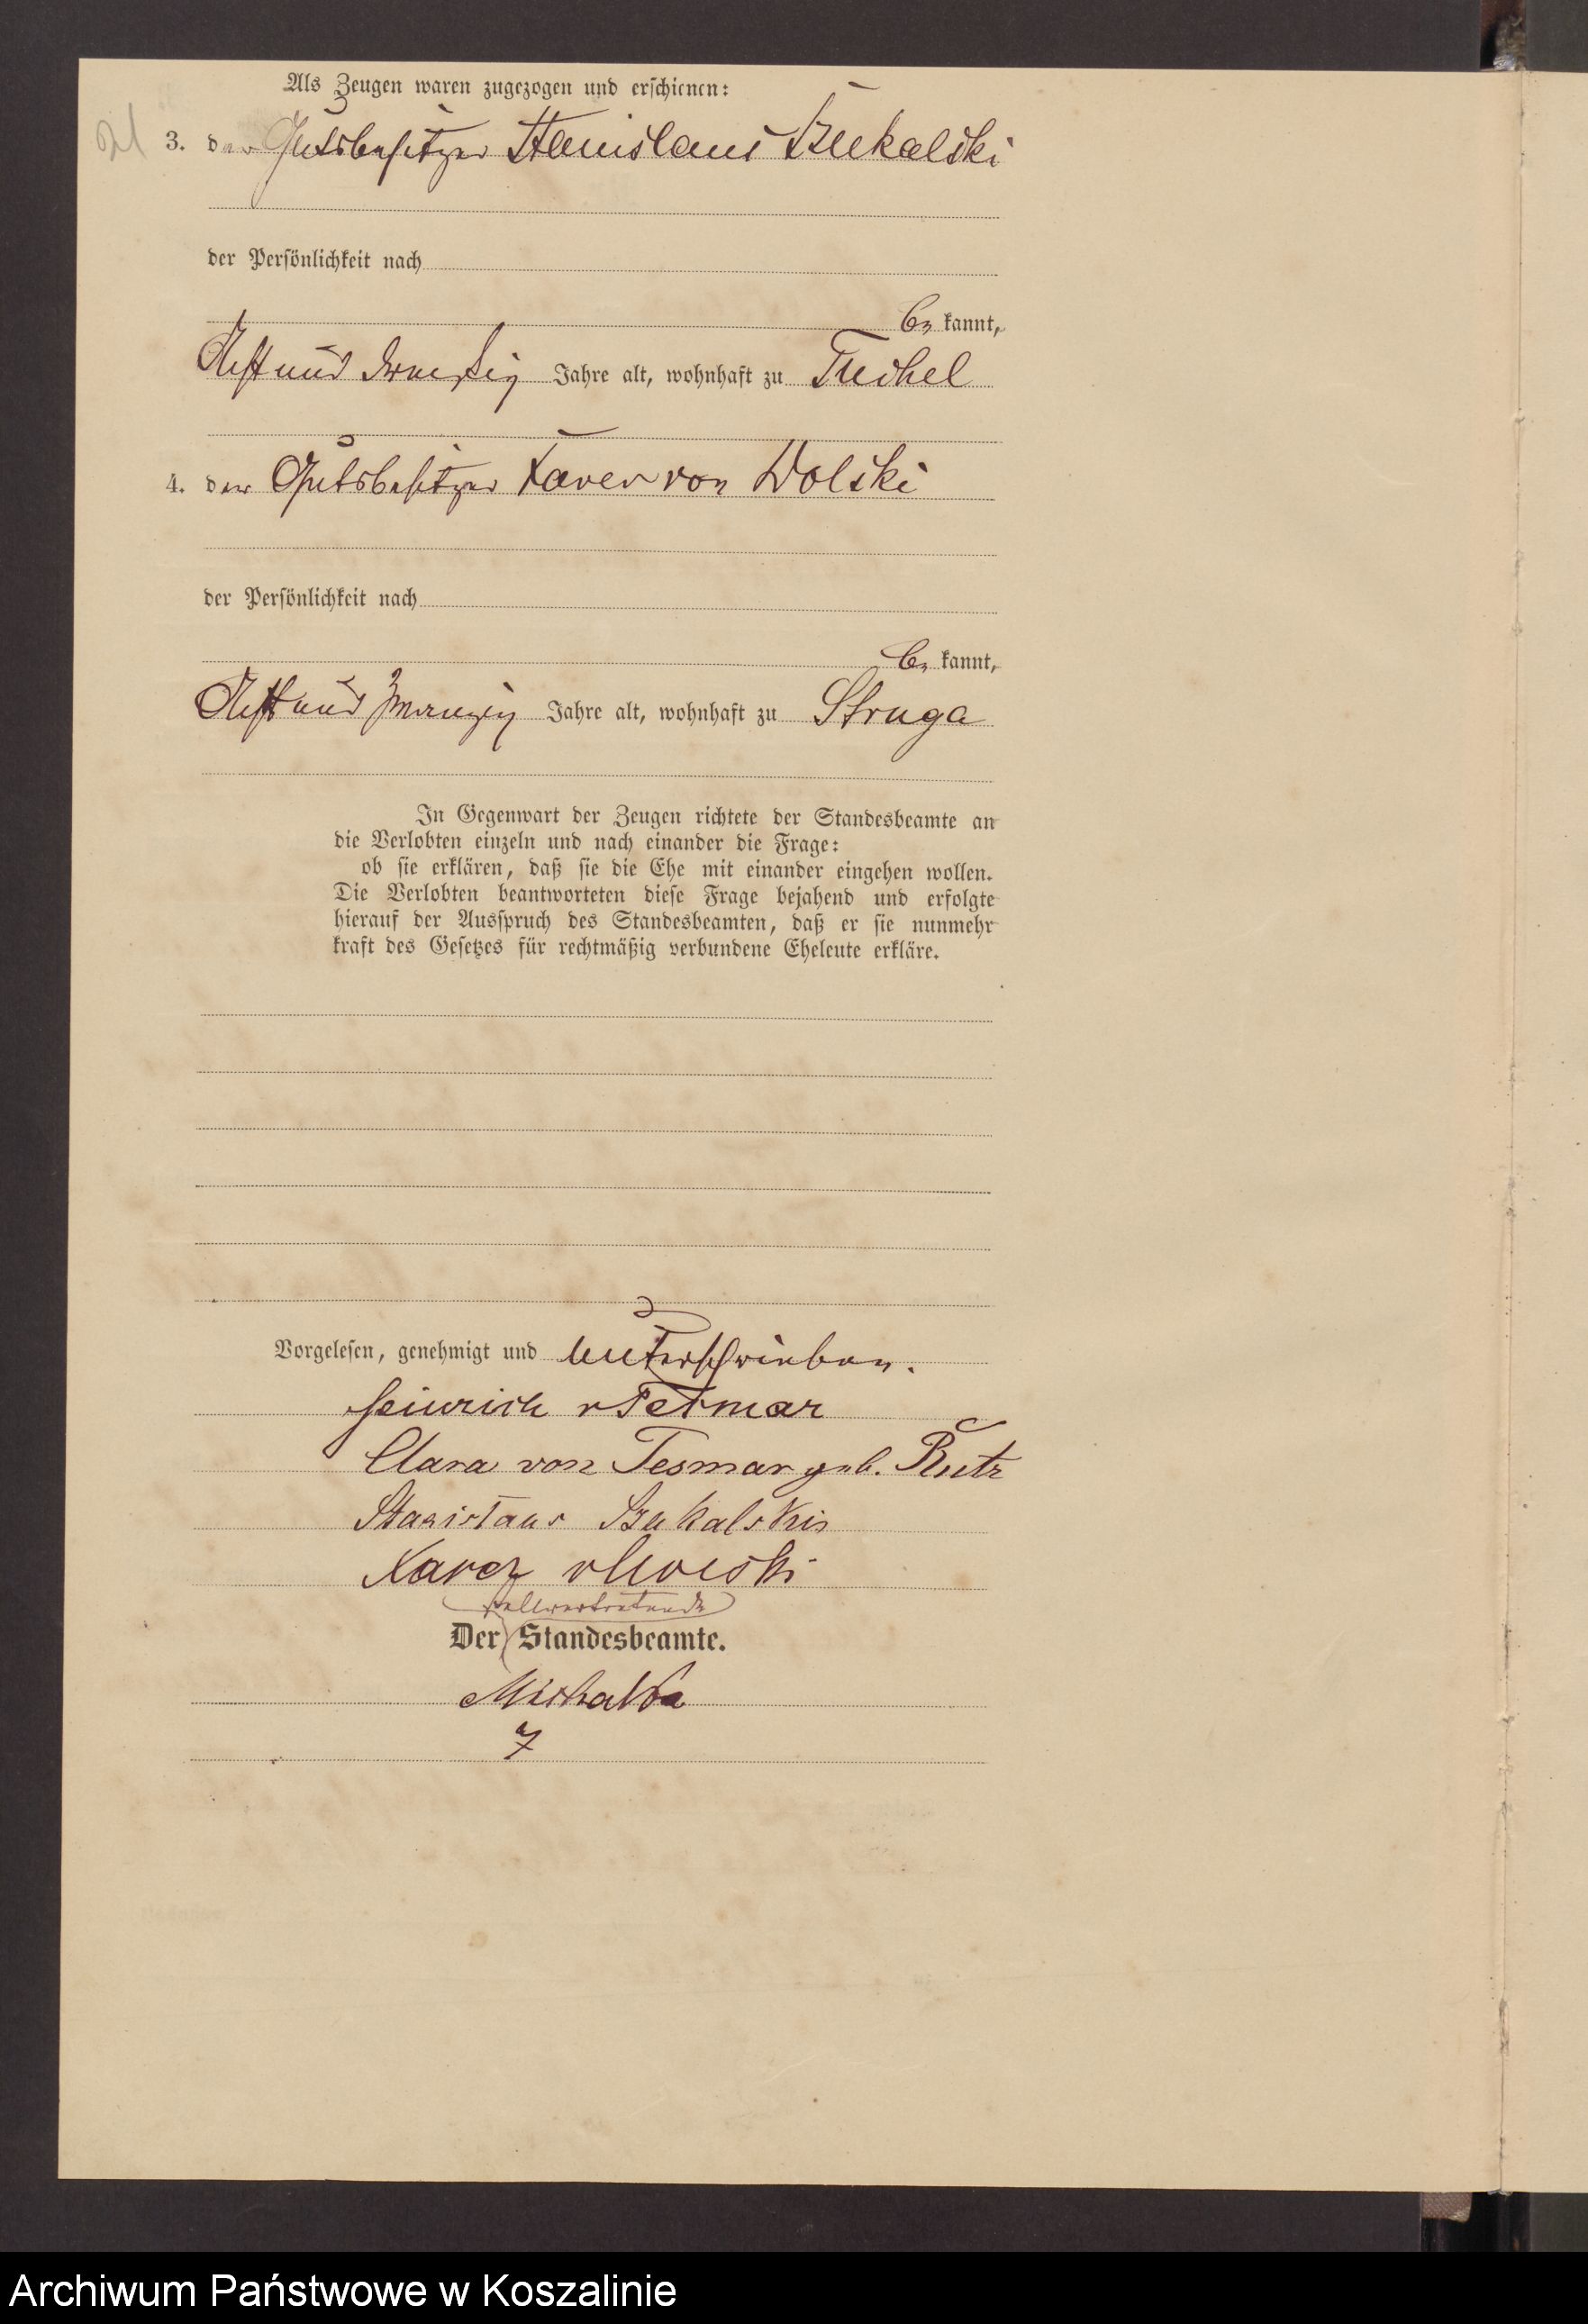 Als Zeugen waren zugezogen und erschienen:
3. der Gutsbesitzer Stanislaus Szukalski
der Persönlichkeit nach
be kannt,
Acht und dreißig Jahre alt, wohnhaft zu Tuchel
4. der Gutsbesitzer Xaver von Wolski
der Persönlichkeit nach
be kannt,
Acht und zwanzig Jahre alt, wohnhaft zu Struga
In Gegenwart der Zeugen richtete der Standesbeamte an
die Verlobten einzeln und nach einander die Frage:
ob sie erklären, daß sie die Ehe mit einander eingehen wollen.
Die Verlobten beantworteten diese Frage bejahend und erfolgte
hierauf der Ausspruch des Standesbeamten, daß er sie nunmehr
kraft des Gesetzes für rechtmäßig verbundene Eheleute erkläre.
Vorgelesen, genehmigt und unterschrieben.
Heinrich v Tesmar
Clara von Tesmar geb. Rutz
Stanislaus Szukalski
Xaver v Wolski
stellvertretende
Der Standesbeamte.
Archiwum Państwowe w Koszalinie